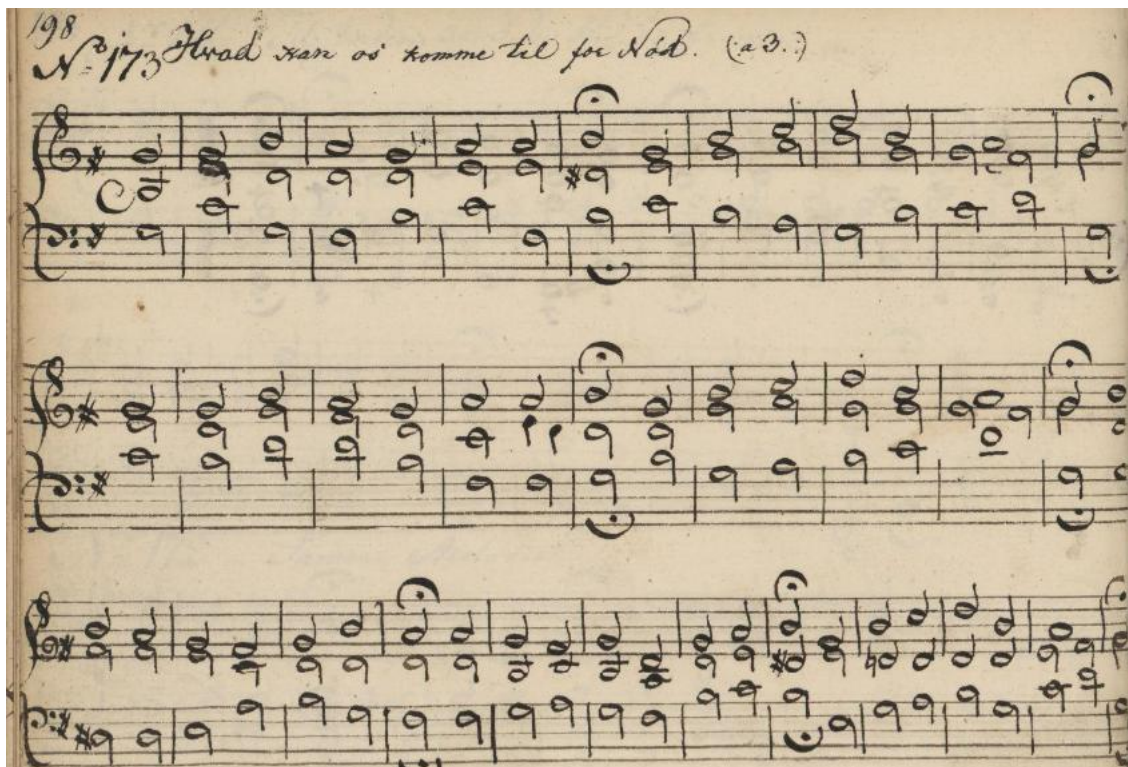 198
No 173 Hvad kan os komme til for Nöd. (a 3.)